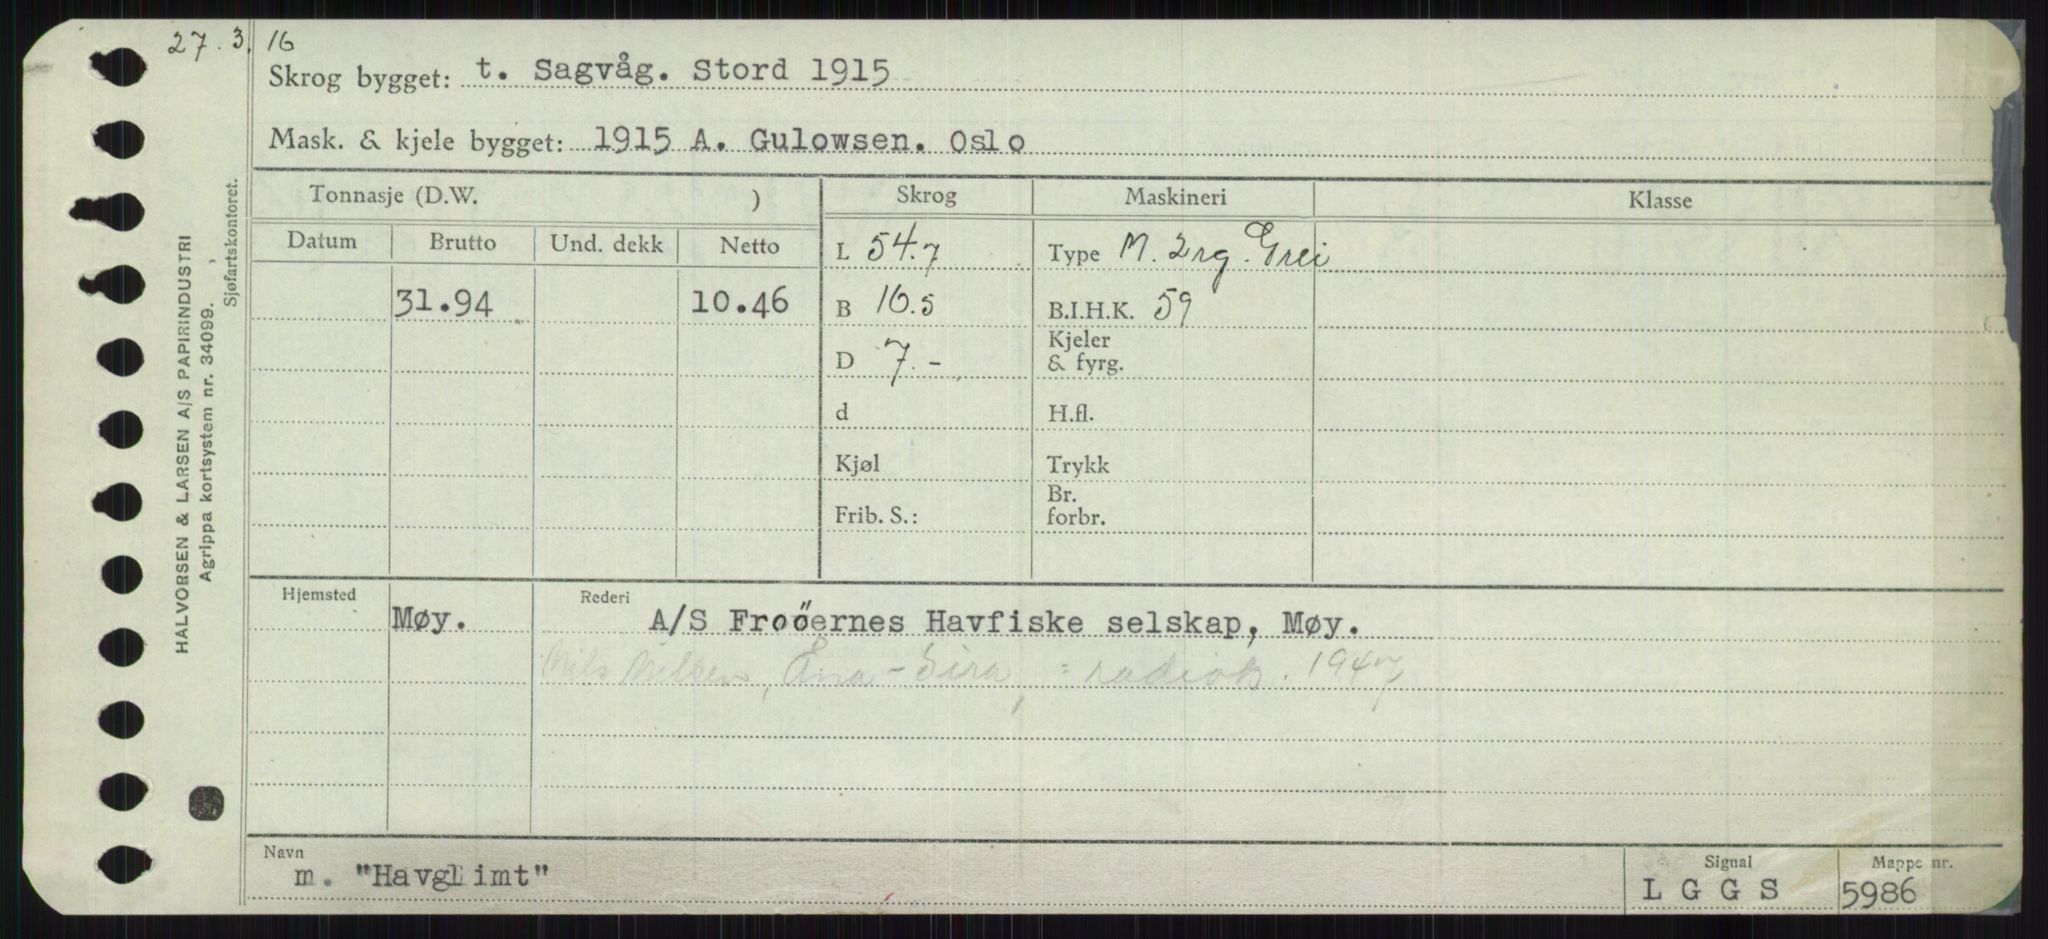 27.3.16
Skrog bygget: t. Sagvåg. Stord 1915
Mask. & kjele bygget: 1915 A. Gulowsen. Oslo
Tonnasje (D.W. ) Skrog Maskineri Klasse
Datum Brutto Und. dekk Netto L 54.7 Type M. 2rg. Grei
31.94 10.46 B 16.5 B.I.H.K. 59
D 7.- Kjeler & fyrg.
d H.fl.
Kjøl Trykk
Frib. S.: Br. forbr.
Hjemsted Rederi
Møy. A/S Froöernes Havfiske selskap, Møy.
Nils Nilsen, Ana-Sira, : radiok. 1947
Navn Signal Mappe nr.
m. "Havglimt" L G G S 5986
HALVORSEN & LARSEN A/S PAPIRINDUSTRI
Agrippa kortsystem nr. 34099.
Sjøfartskontoret.